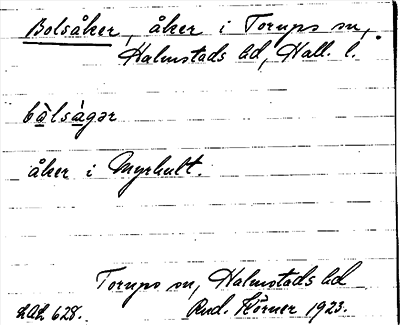 Bolsåker, åker i Torups sn,
Halmstads hd, Hall. l.
bòlsàgər
åker i Myrhult.
Torups sn, Halmstads hd
LAL 628. Rud. Körner 1923.